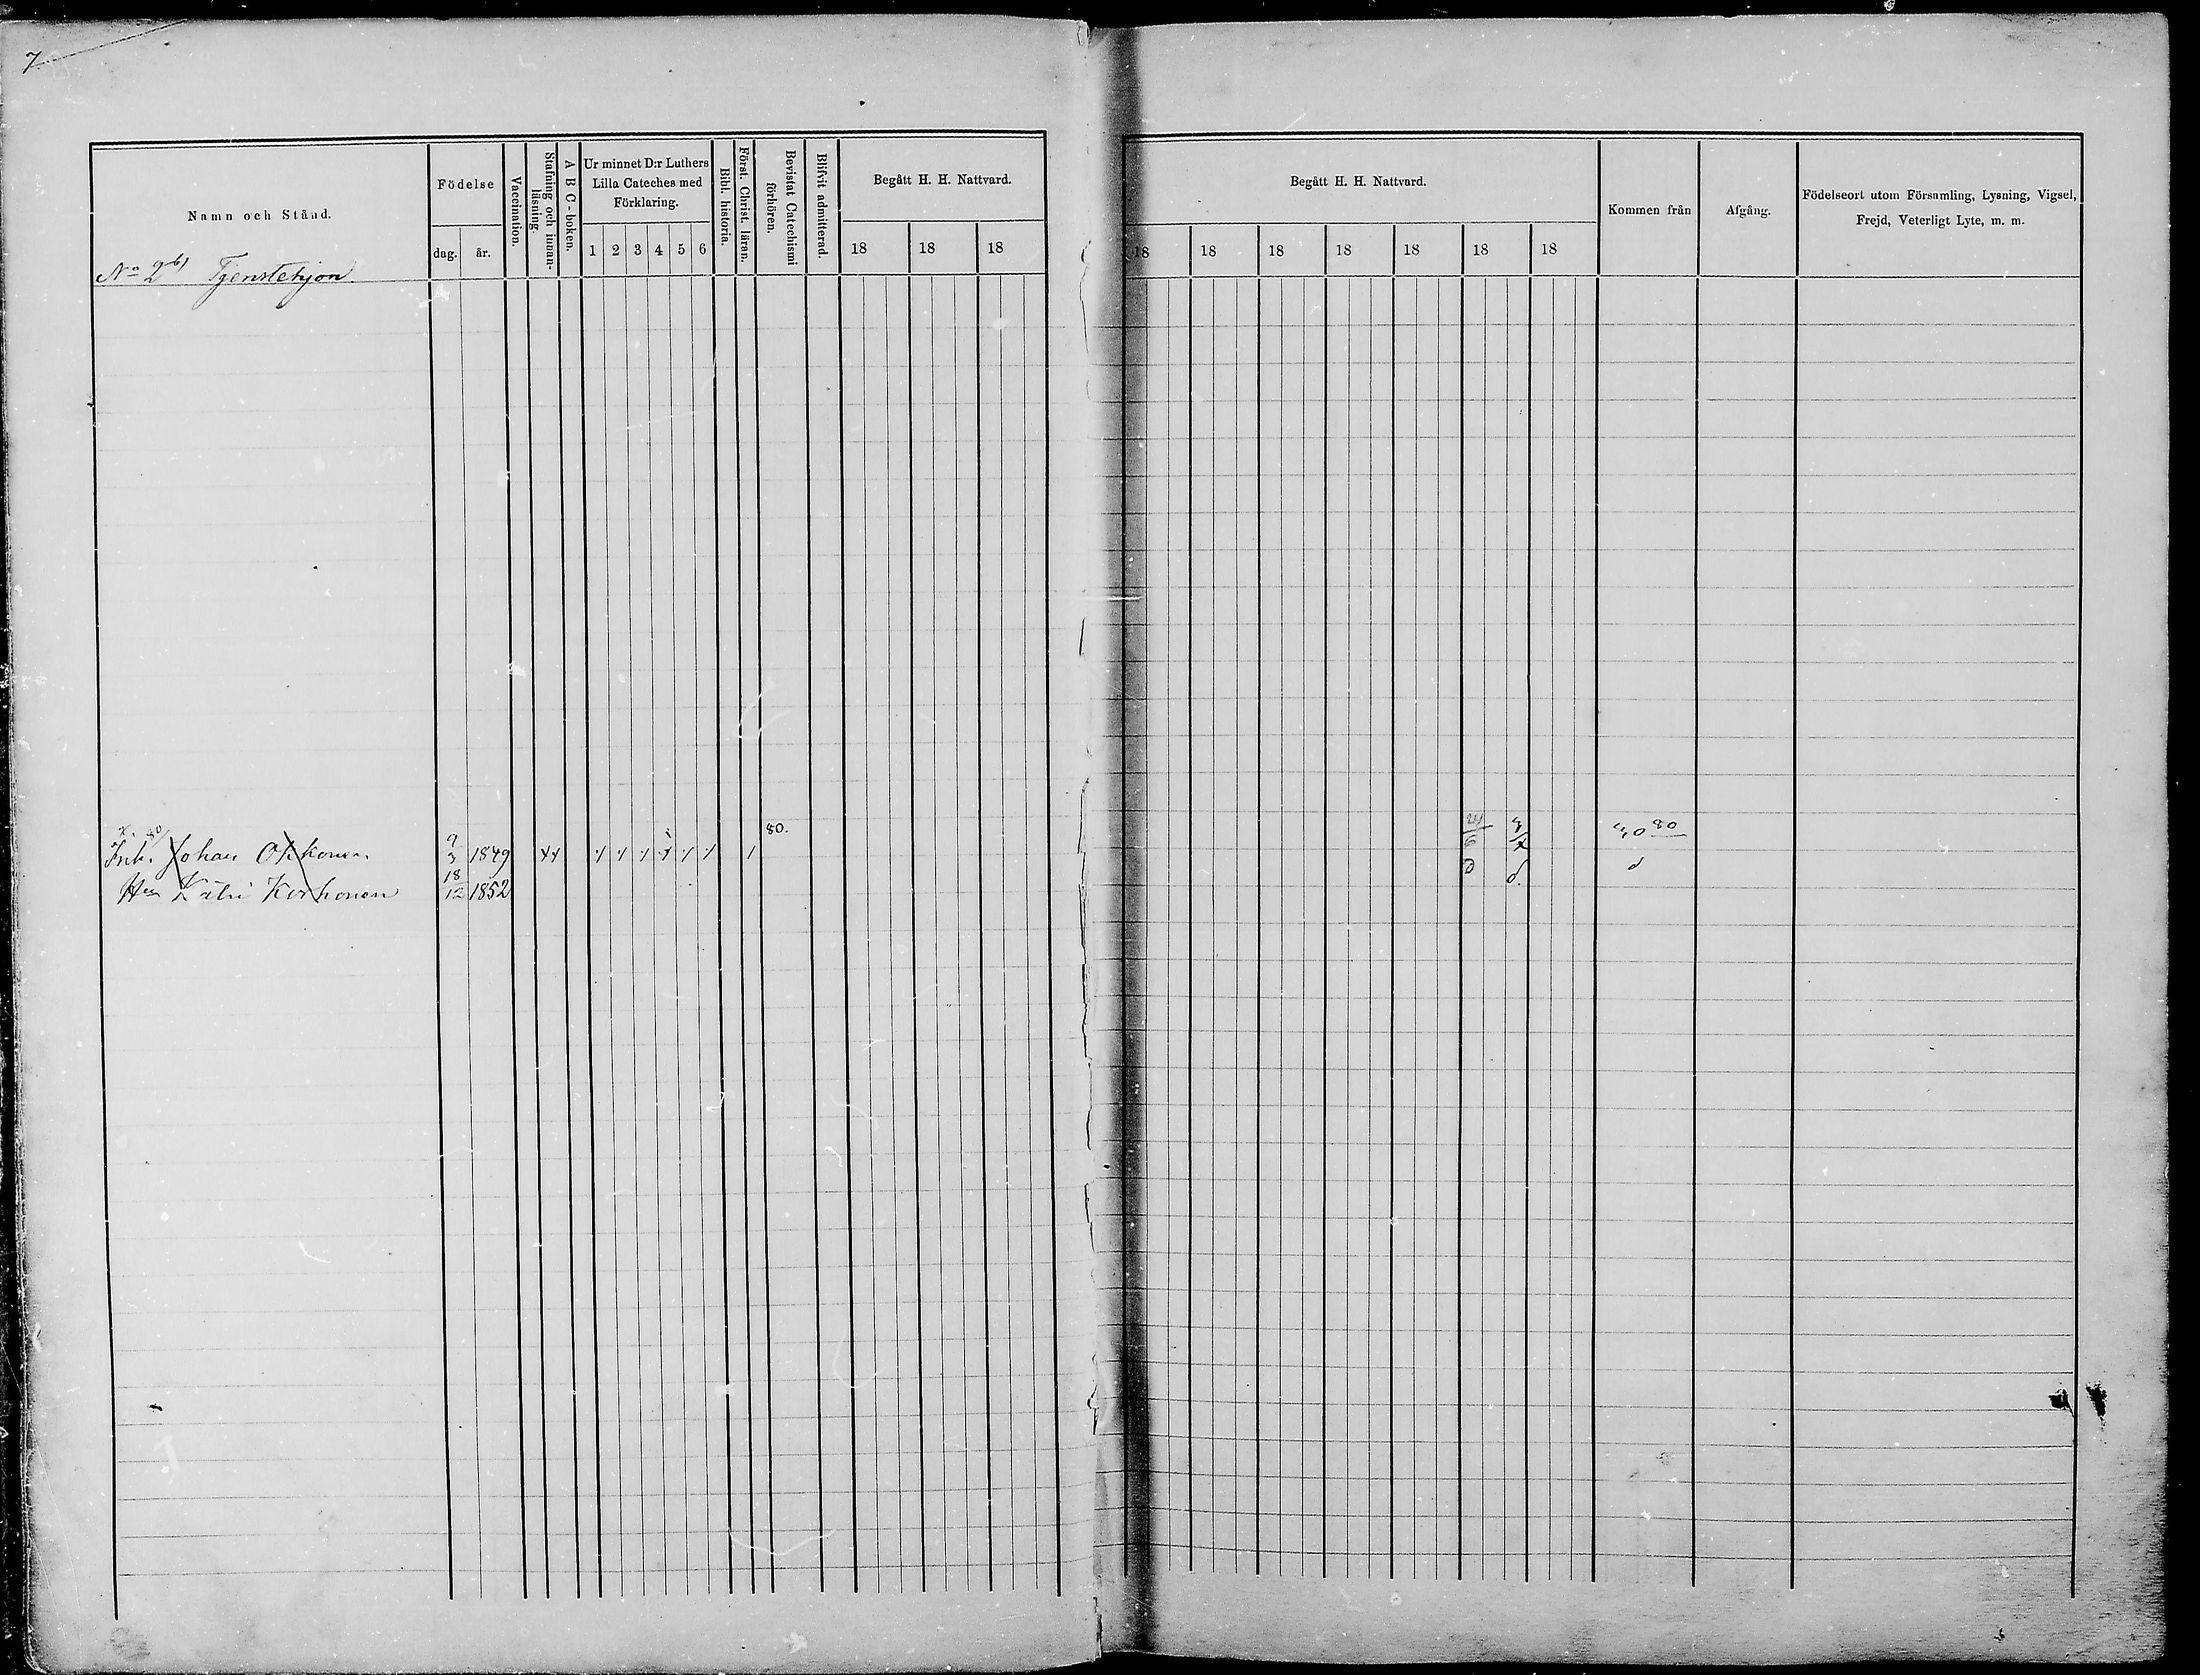 7.
Namn och Stånd.
Födelse
dag. år.
Vaccination.
Stafning och innan-
läsning.
A B C - boken.
Ur minnet D:r Luthers
Lilla Cateches med
Förklaring.
1 2 3 4 5 6
Bibl. historia.
Först. Christ. läran.
Bevistat Catechismi
förhören.
Blifvit admitterad.
Begått H. H. Nattvard.
18 18 18
Begått H. H. Nattvard.
18 18 18 18 18 18 18
Kommen från
Afgång.
Födelseort utom Församling, Lysning, Vigsel,
Frejd, Veterligt Lyte, m. m.
No 2 b) Tjenstehjon.
80.
Inh. Johan 9/3 1849 30 80
Hu Katri Korhonen 18/12 1852 d